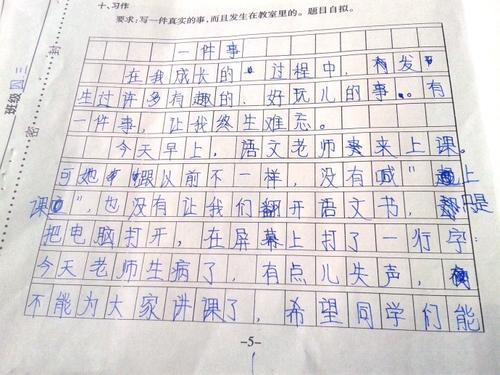 十、习作
要求:写一件真实的事,而且发生在教室里的。题目自拟。
一件事
在我成长的过程中,有发
生过许多有趣的、好玩儿的事。有
一件事,让我终生难忘。
今天早上,语文老师来上课。
可她跟以前不一样,没有喊"上
课",也没有让我们翻开语文书,只是
把电脑打开,在屏幕上打了一行字:
今天老师生病了,有点儿失声,
不能为大家讲课了,希望同学们能
-5-
班级四三
封
密